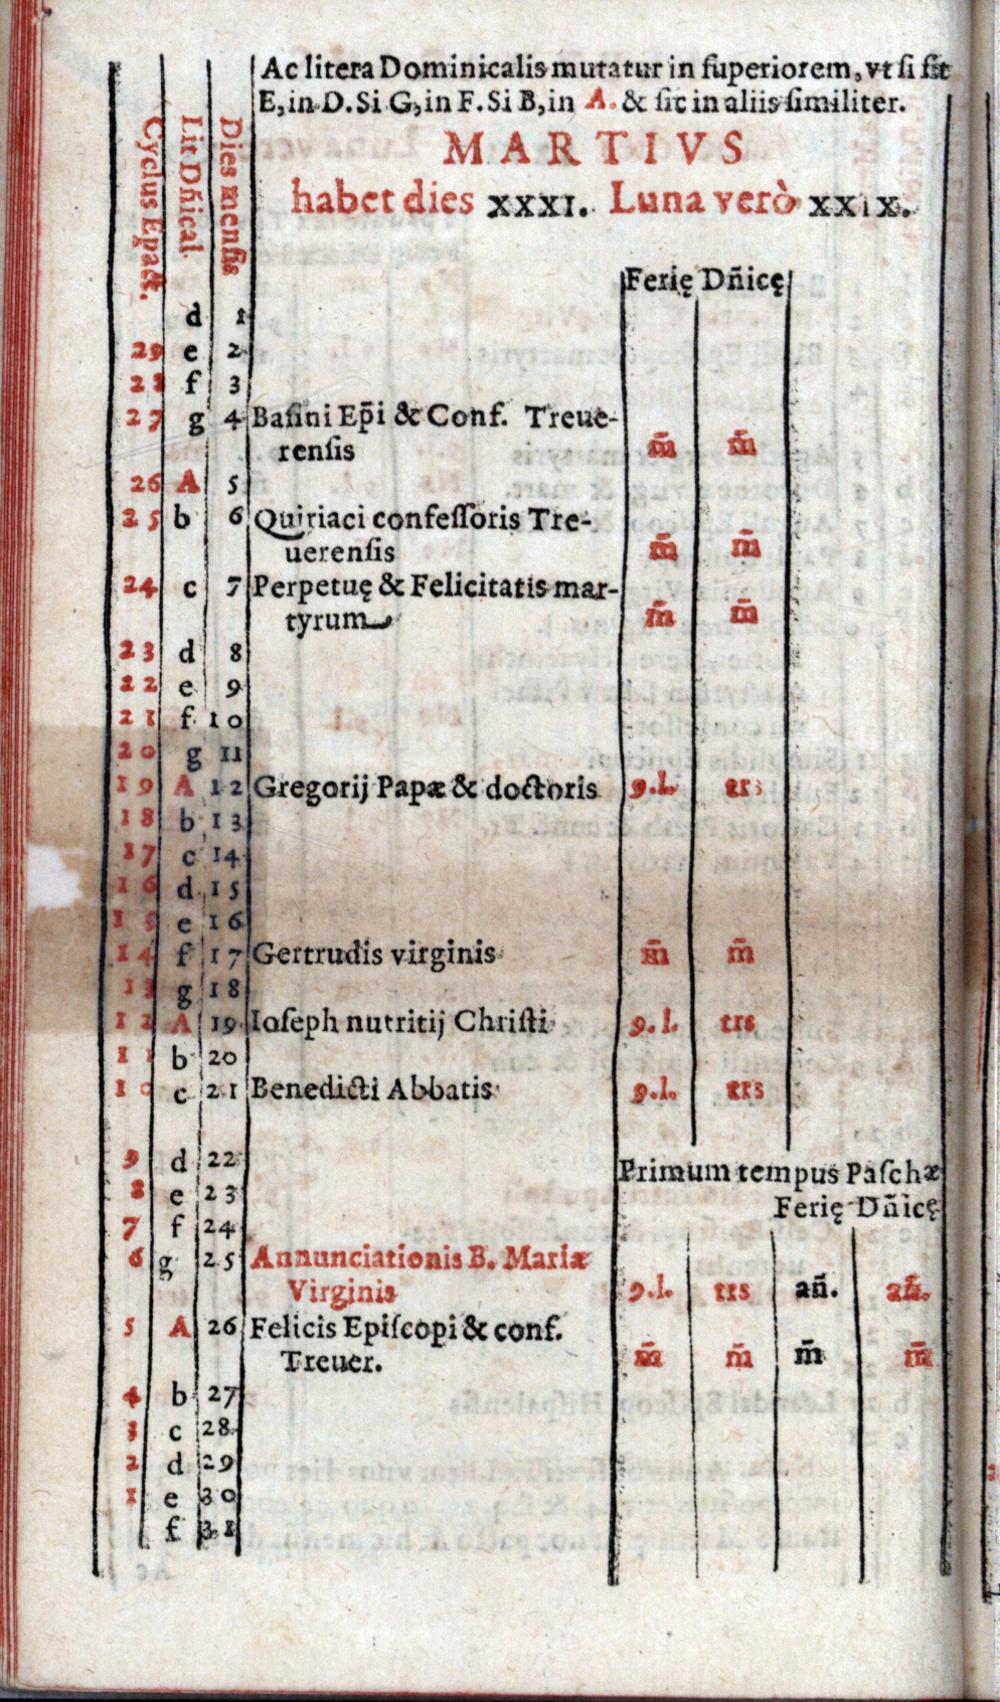 Ac litera Dominicalis mutatur in ſuperiorem, vt ſi ſit
E, in D. Si G, in F. Si B, in A. & ſic in aliis ſimiliter.
MARTIVS
habet dies XXXI. Luna verò XXIX.
Cyclus Epact.
Lit Dñical.
Dies menſis
Ferię Dñicę
d 1
29 e 2
28 f 3
27 g 4 Baſini Ep̄i & Conf. Treue-
renſis m̄ m̄
26 A 5
25 b 6 Quiriaci confeſſoris Tre-
uerenſis m̄ m̄
24 c 7 Perpetuę & Felicitatis mar-
tyrum m̄ m̄
23 d 8
22 e 9
21 f 10
20 g 11
19 A 12 Gregorij Papæ & doctoris 9.l. trs
18 b 13
17 c 14
16 d 15
15 e 16
14 f 17 Gertrudis virginis m̄ m̄
13 g 18
12 A 19 Ioſeph nutritij Chriſti 9.l. trs
11 b 20
10 c 21 Benedicti Abbatis 9.l. trs
9 d 22 Primum tempus Paſchæ
8 e 23 Ferię Dñicę
7 f 24
6 g 25 Annunciationis B. Mariæ
Virginis 9.l. trs an̄. an̄.
5 A 26 Felicis Epiſcopi & conf.
Treuer. m̄ m̄ m̄ m̄
4 b 27
3 c 28
2 d 29
1 e 30
f 31